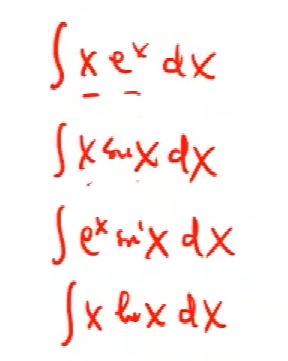 ∫ x eˣ dx
∫ x sin x dx
∫ eˣ sin x dx
∫ x ln x dx